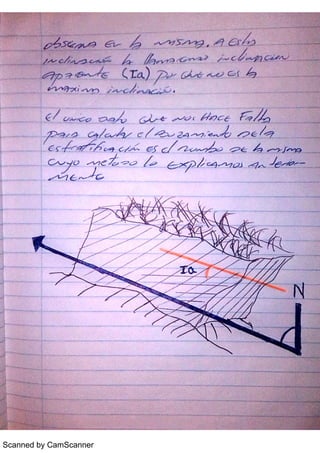 observa en la misma. A esta
inclinación la llamamos inclinación
aparente (Ia) porque no es la
maxima inclinación.
El unico dato que nos hace falta
para calcular el buzamiento de la
estratificación es el rumbo de la misma
cuyo metodo lo explicamos anterior-
mente
Ia
N
Scanned by CamScanner